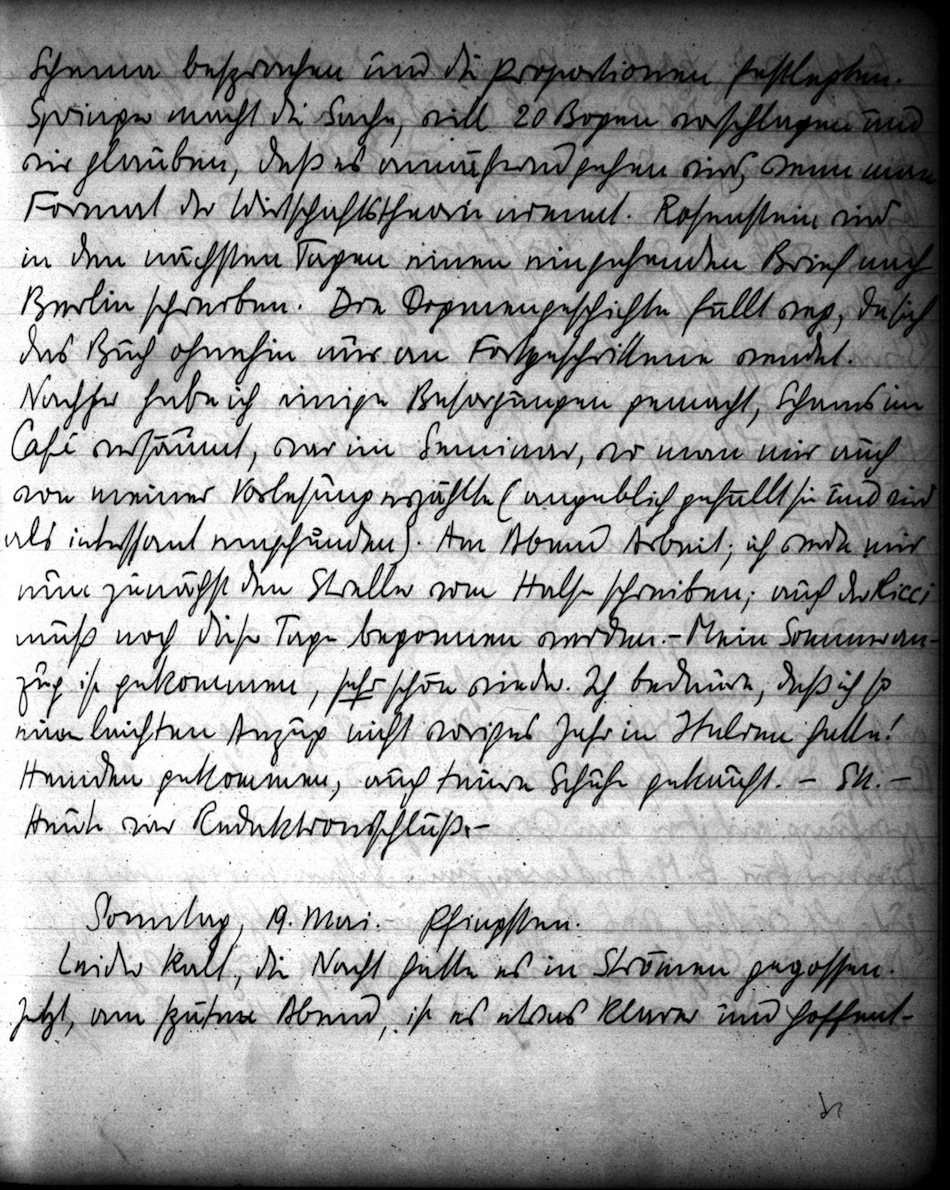 Schema besprochen und die Proportionen festlegten.
Springer macht die Sache, will 20 Bogen vorschlagen und
wir glauben, daß es annähernd gehen wird, wenn man
Format der Wirtschaftstheorie nimmt. Rosenstein wird
in den nächsten Tagen einen eingehenden Brief nach
Berlin schreiben. Die Dogmengeschichte fällt weg, da sich
das Buch ohnehin nur an Fortgeschrittene wendet.
Nachher habe ich einige Besorgungen gemacht, Schams im
Café versäumt, war im Seminar, wo man mir auch
von meiner Vorlesung erzählte (angeblich gefällt sie und wird
als interessant empfunden). Am Abend Arbeit; ich werde mir
nun zunächst den Streller vom Halse schreiben; auch der Ricci
muß noch diese Tage begonnen werden. – Mein Sommeran-
zug ist gekommen, sehr schön wieder. Ich bedaure, daß ich so
einen leichten Anzug nicht voriges Jahr in Italien hatte!
Hemden gekommen, auch teure Schuhe gekauft. – Sk. –
Heute war Redaktionsschluß. –
Sonntag, 19. Mai. Pfingsten.
Leider kalt, die Nacht hatte es in Strömen gegossen.
Jetzt, am späten Abend, ist es etwas klarer und hoffent-